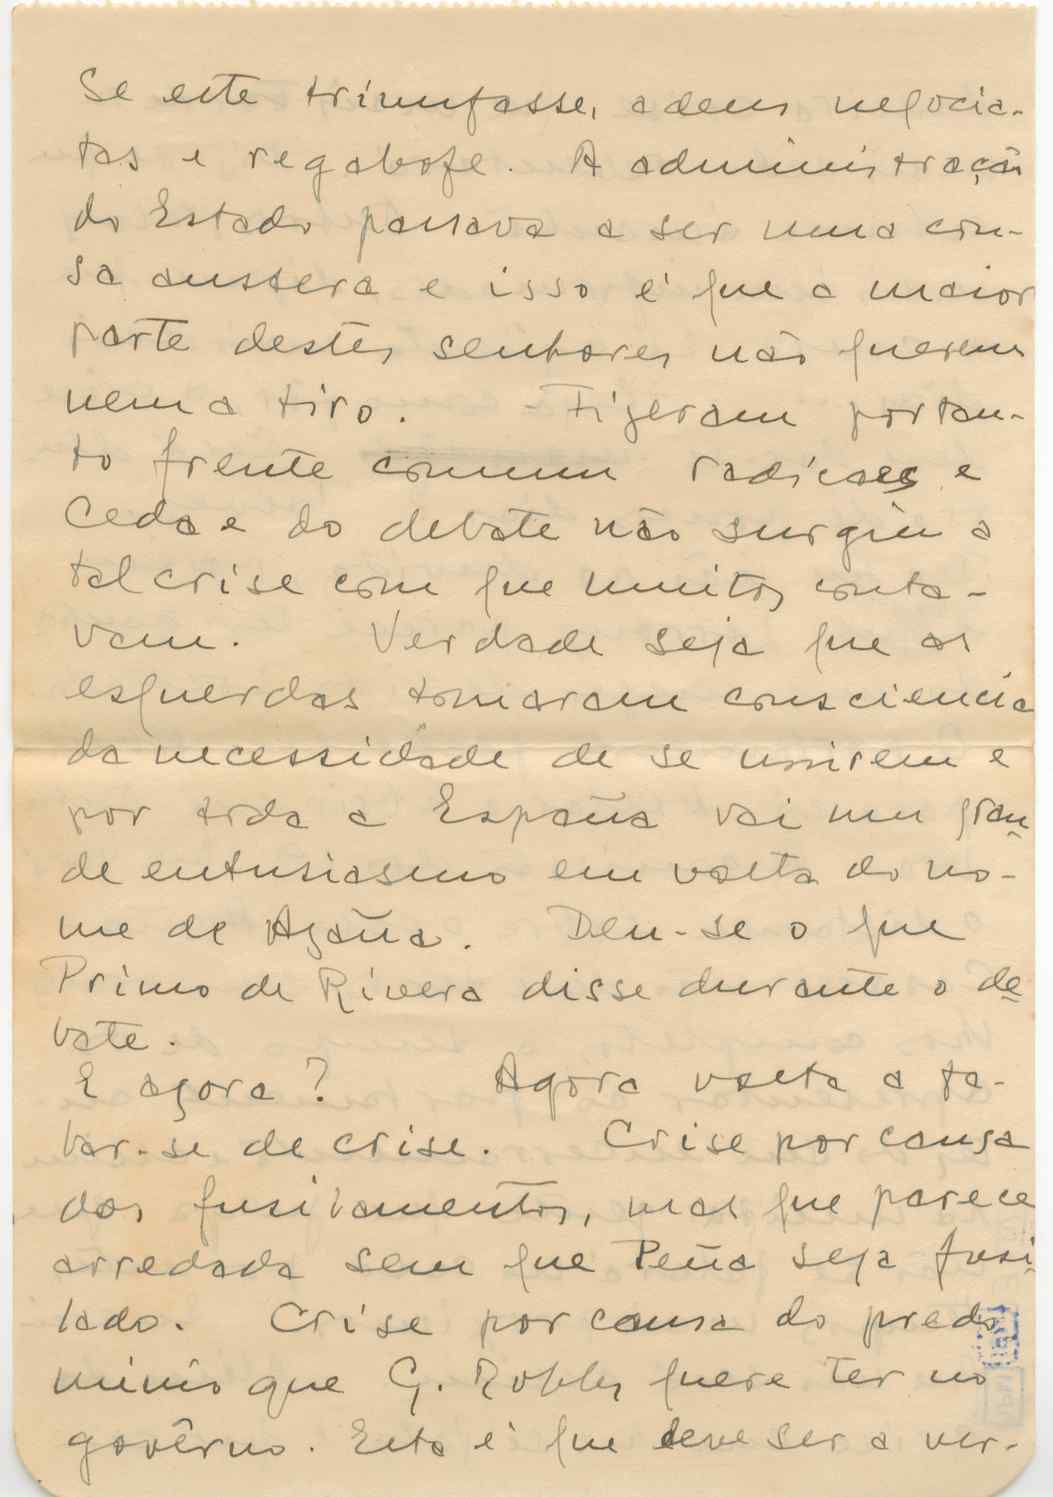 Se este triumfasse, adeus negocia-
tas e regabofe. A administração
do Estado passava a ser uma cou-
sa austera e isso é que a maior
parte destes senhores não querem
nem a tiro. - Fizeram portan-
to frente comum radicaes e
Ceda e do debate não surgiu a
tal crise com que muitos conta-
vam. Verdade seja que as
esquerdas tomaram consciencia
da necessidade de se unirem e
por toda a España vai um gran
de entusiasmo em volta do no-
me de Azaña. Deu-se o que
Primo de Rivera disse durante o de
bate.
E agora? Agora volta a fa-
lar-se de crise. Crise por causa
dos fusilamentos, mas que parece
arredada sem que Peña seja fusi
lado. Crise por causa do predo
minio que G. Robles quere ter no
govêrno. Esta é que deve ser a ver-